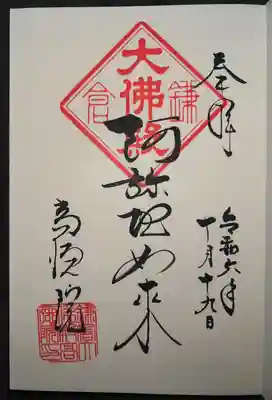 奉拝
令和六年
十月十九日
鎌倉
大佛殿
阿弥陀如来
高徳院